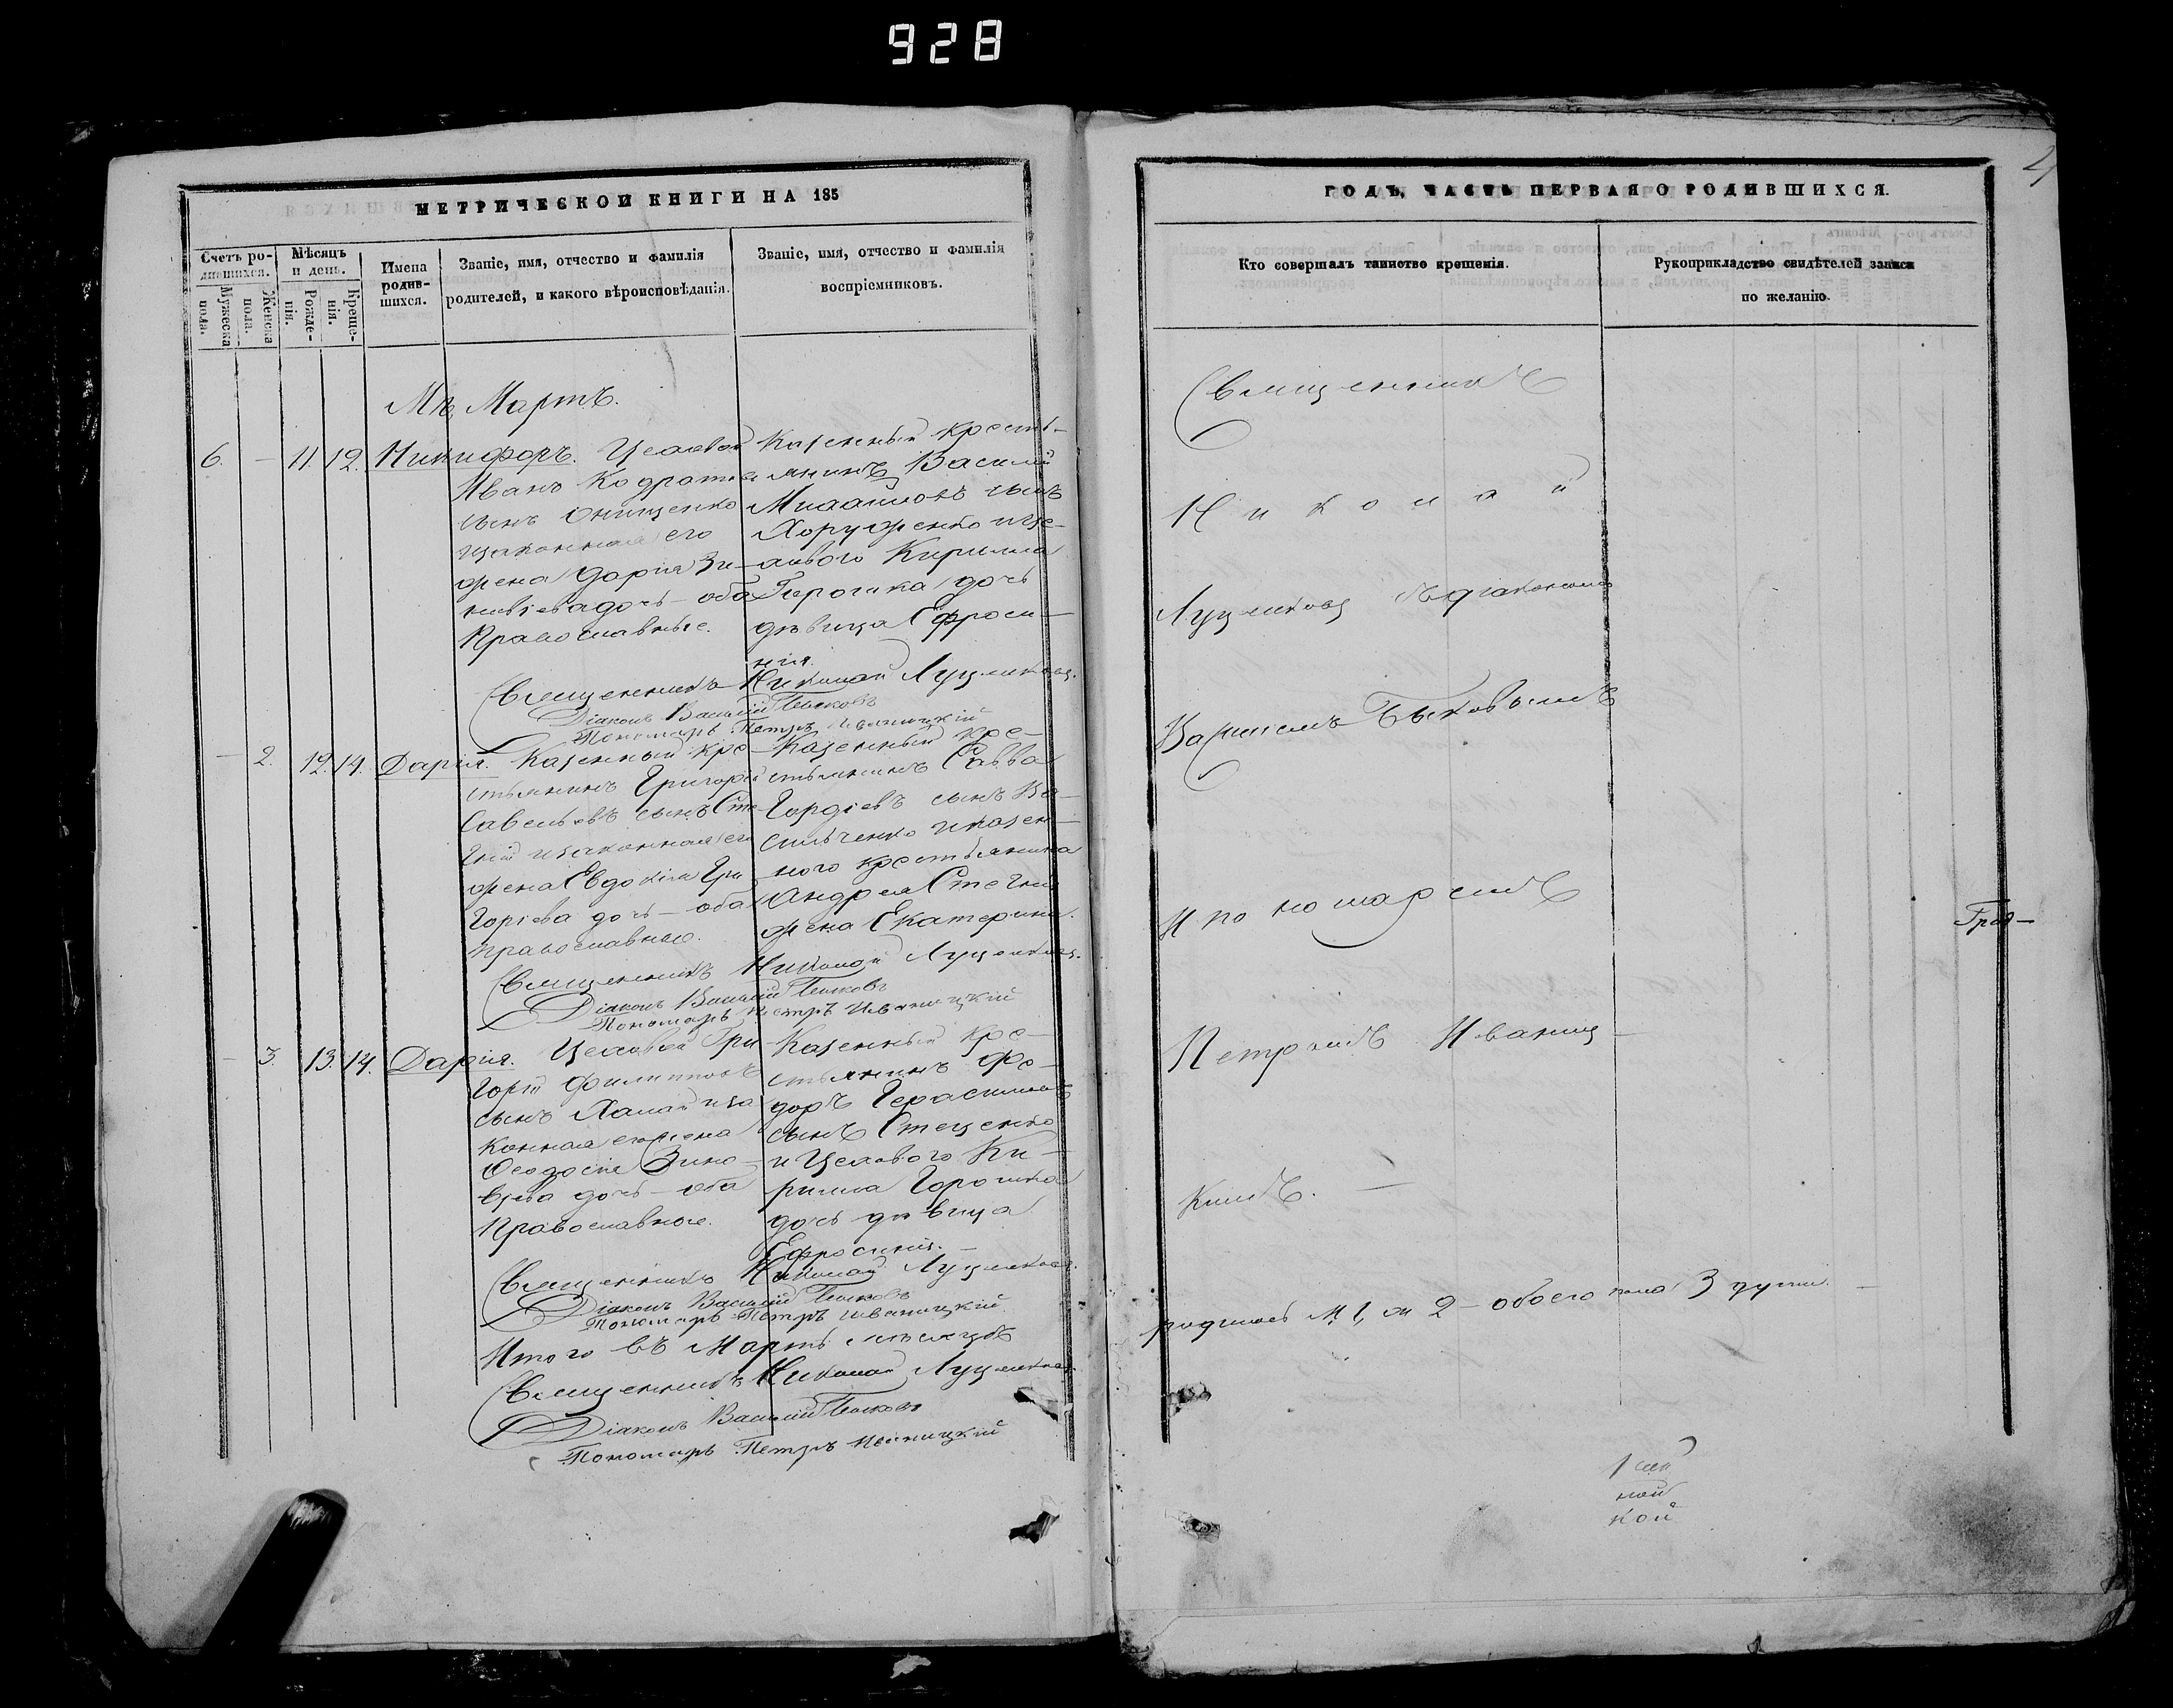 928
МЕТРИЧЕСКОЙ КНИГИ НА 185
Счетъ ро-
дившихся.
Мужеска
пола.
Женска
пола.
Мѣсяцъ
и день.
Рожде-
нія.
Креще-
нія.
Имена
родив-
шихся.
Званіе, имя, отчество и фамилія
родителей, и какого вѣроисповѣданія.
Званіе, имя, отчество и фамилія
воспріемниковъ.
Мц. Мартъ.
6. — 11. 12. Никифоръ.
Иванъ Кодратовъ
сынъ Онищенко
изаконная его
жена Дарія Зи-
новіева дочь — оба
Православные.
Казенный кресть-
янинъ Василій
Михайловъ сынъ
Хоруженко и Це-
ловаго Кирилла
дочь
дѣвица Ефроси-
нія.
Священникъ Николай
Діаконъ Василій
Пономарь Петръ Иваницкій
— 2. 12. 14. Дарія. Казенный кре-
стьянинъ Григорій
Савельевъ сынъ Сте-
изаконная его
жена Евдокія Гри-
горіева дочь — оба
православные.
Казенный кре-
стьянинъ Савва
Гордіевъ сынъ Ва-
сильченко и казен-
ного крестьянина
Андрея
жена Екатерина.
Священникъ Николай
Діаконъ Василій
Пономарь Петръ Иваницкій
— 3. 13. 14. Дарія. Гри-
горій Филипповъ
сынъ иза-
конная его жена
Ѳеодосія Зино-
віева дочь — оба
Православные.
Казенный кре-
стьянинъ Фе-
доръ Герасимовъ
сынъ Стеценко
и Ки-
рилла
дочь дѣвица
Ефросинія.
Священникъ Николай
Діаконъ Василій
Пономарь Петръ Иваницкій
Итого въ Мартѣ мѣсяцѣ
Священникъ Николай
Діаконъ Василій
Пономарь Петръ Иваницкій
ГОДЪ, ЧАСТЬ ПЕРВАЯ О РОДИВШИХСЯ.
Кто совершалъ таинство крещенія.
Рукоприкладство свидѣтелей записи
по желанію.
Священникъ
Николай
съ діакономъ
Василіемъ
И пономаремъ
Петромъ Иваниц-
кимъ. —
родилось М. 1, ж 2 — обоего пола 3 души. —